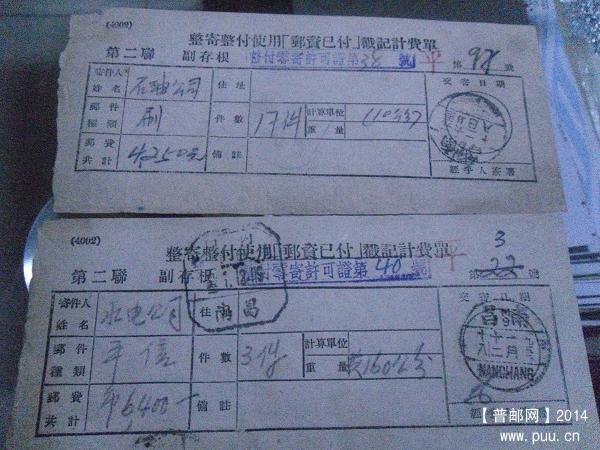 (4002)
整寄整付使用「郵資已付」戳記計費單
第二聯 副存根 整付零寄許可證第38號 平 第98號
寄件人姓名 石油公司 住址 交寄日期
郵件種類 刷 件數 17件 計算單位重量
郵費共計 4250元 備註 經手人簽署
(4002)
整寄整付使用「郵資已付」戳記計費單
第二聯 副存根 整付零寄許可證第40號 平 3
第22號
寄件人姓名 水电公司 住 南昌 交寄日期
郵件種類 平信 件數 3件 計算單位重量 160公分
郵費共計 6,400 備註
南昌
NANCHANG
【普邮网】2014
www.puu.cn